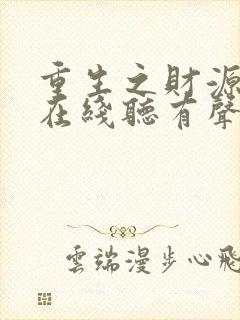 重生之財源
在綫聽有聲
雲端漫步心飛